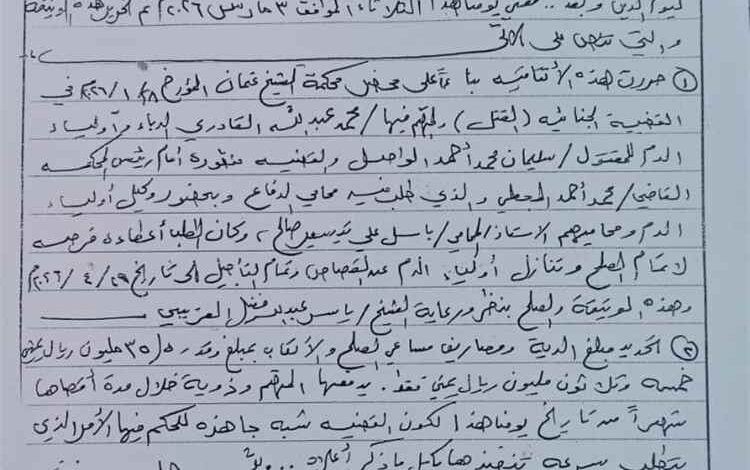 ليوم الدين وبعد .. ففي يومنا هذا الثلاثاء الموافق ٣ مارس ٢٠٢٦م تم تحرير هذه الوثيقة
والتي تنص على الآتي
① حررت هذه الأتفاقية بناءاً على محضر محكمة الشيخ عثمان المؤرخ ١٨/١/٢٠٢٦م في
القضية الجنائية (القتل) والمتهم فيها/ محمد عبدالله القادري الدباء وأولياء
الدم للمقتول/ سليمان محمد أحمد الواحل والقضية منظورة أمام رئيس المحكمة
القاضي/ محمد أحمد المحطي والذي طلب فيه محامي الدفاع وبحضور وكيل أولياء
الدم ومحاميهم الاستاذ المحامي/ باسل علي صالح ، وكان الطلب أعطاءه فرصه
لاتمام الصلح وتنازل أولياء الدم عن القصاص وتمام التأجيل الى تاريخ ٢٩/٤/٢٠٢٦م
وهذه الوثيقة والصلح بنظر ورعاية الشيخ/ ياسر عبدالله فضل العزيبي
② تحديد مبلغ الدية ومصاريف مساعي الصلح والأتعاب بمبلغ وقدره/ ٣٥ مليون ريال يمني
خمسة وثلاثون مليون ريال يمني فقط . يدفعها المتهم وذوية خلال مدة أقصاها
شهراً من تاريخ يومنا هذا لكون القضيه شبه جاهزه للحكم فيها الأمر الذي
يتطلب سرعة تنفيذها بكل ما ذكر أعلاه